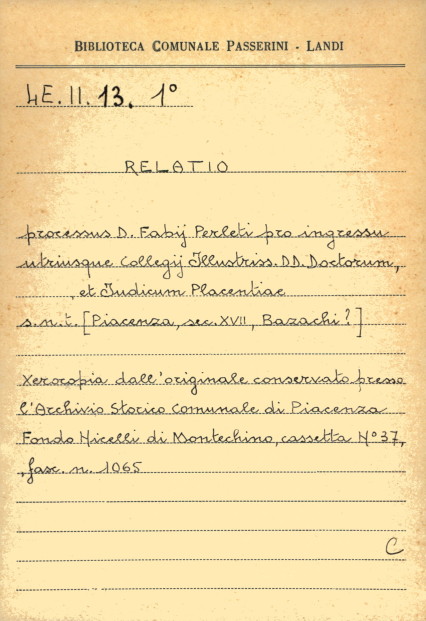 BIBLIOTECA COMUNALE PASSERINI - LANDI
4E. II. 13. 1°
RELATIO
processus D. Fabij Perleti pro ingressu
utriusque Collegij Illustriss. DD. Doctorum,
et Iudicum Placentiae
s.n.t. [Piacenza, sec. XVII, Bazachi?]
Xerocopia dall'originale conservato presso
l'Archivio Storico Comunale di Piacenza
Fondo Nicelli di Montechino, cassetta N° 37,
fasc. n. 1065
C